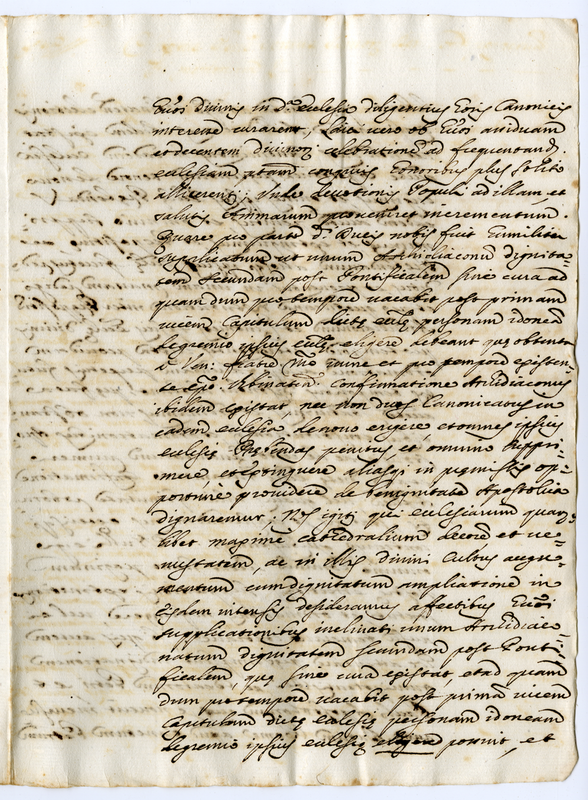 divinis in d.ᵃ ecclesia diligentius Canonicis
interesse curarent, Laici vero ob assiduam
et decentem divinoꝝ celebrationē ad frequentand.
ecclesiam ptam. congruis honoribus plus solito
allicerent; Inde devotionis Populi ad illam, et
salutis Animarum proveniret incrementum.
Quare pro parte d. Ducis nobis fuit humiliter
supplicatum ut unum Archidiaconũ dignita-
tem secundam post Pontificalem sine cura ad
quam dum pro tempore vacabit post primam
vicem Capitulum dictę ecclę personam idoneā
de gremio ipsius ecclę eligere debeant quę obtenta
a Ven: fratre nr̃o nunc et pro tempore existen-
te epõ Urbinatẽn. confirmatione Archidiaconus
ibidem existat, nec non duos Canonicatus in
eadem ecclesia de novo erigere et omnes ipsius
ecclesię Prębendas penitus et omnino suppri-
mere, et extinguere aliasq; in pręmissis op-
portune providere de benignitate Apostolica
dignaremur. Nos igitʳ qui ecclesiarum quarū-
libet maximè cathedralium decorẽ et ve-
nustatem, ac in illis divini Cultus augu-
mentum cum dignitatum ampliatione in
eisdem intensis desideramus affectibus
supplicationibus inclinati unum Archidiaco-
natum dignitatem secundam post Ponti-
ficalem, quę sine cura existat, et ad quam
dum pro tempore vacabit post primā vicem
Capitulum dictę ecclesię personam idoneam
de gremio ipsius ecclesię possint, et